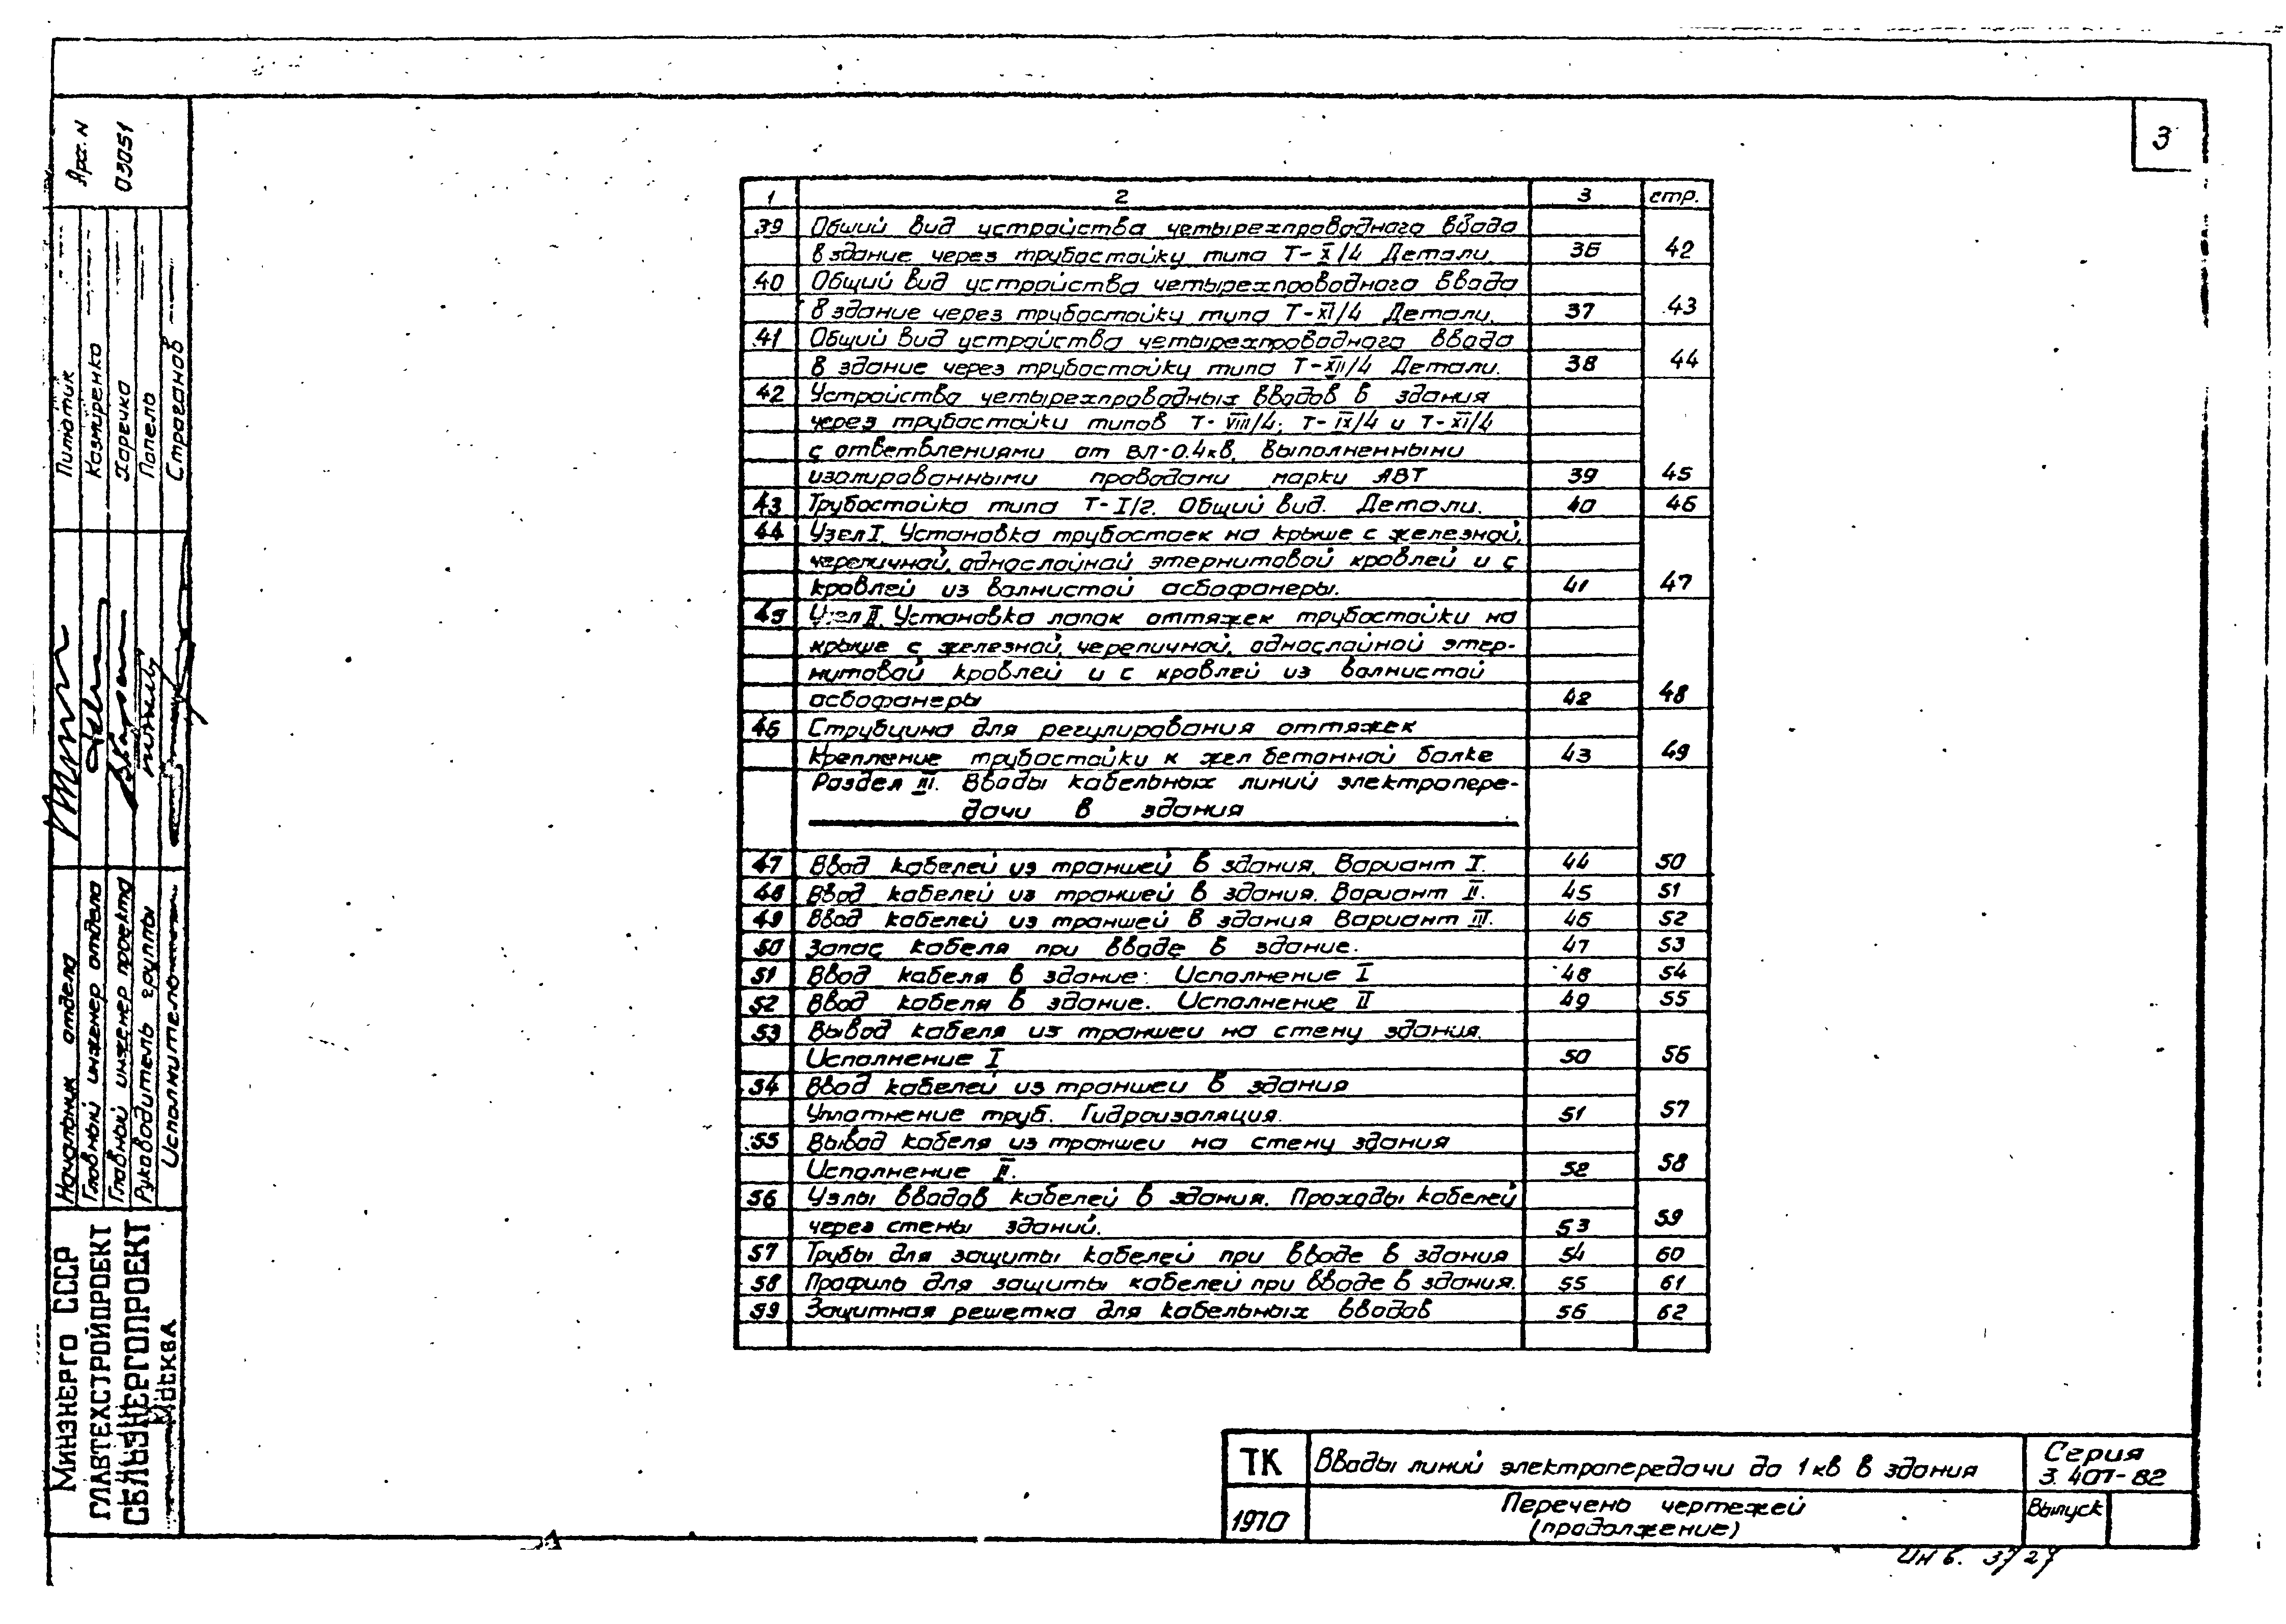 3
1 2 3 стр.
39 Общий вид устройства четырехпроводного ввода
в здание через трубостойку типа Т-X/4 Детали. 36 42
40 Общий вид устройства четырехпроводного ввода
в здание через трубостойку типа Т-XI/4 Детали. 37 43
41 Общий вид устройства четырехпроводного ввода
в здание через трубостойку типа Т-XII/4 Детали. 38 44
42 Устройства четырехпроводных вводов в здания
через трубостойки типов Т-VIII/4; Т-IX/4 и Т-XI/4
с ответвлениями от ВЛ-0.4кв, выполненными
изолированными проводами марки АВТ 39 45
43 Трубостойка типа Т-I/2. Общий вид. Детали. 40 46
44 Узел I. Установка трубостоек на крыше с железной,
черепичной, однослойной этернитовой кровлей и с
кровлей из волнистой асбофанеры. 41 47
45 Узел II. Установка лапок оттяжек трубостойки на
крыше с железной, черепичной, однослойной этер-
нитовой кровлей и с кровлей из волнистой
асбофанеры 42 48
46 Струбцина для регулирования оттяжек
Крепление трубостойки к жел бетонной балке 43 49
Раздел III. Вводы кабельных линий электропере-
дачи в здания
47 Ввод кабелей из траншей в здания. Вариант I. 44 50
48 Ввод кабелей из траншей в здания. Вариант II. 45 51
49 Ввод кабелей из траншей в здания Вариант III. 46 52
50 Запас кабеля при вводе в здание. 47 53
51 Ввод кабеля в здание. Исполнение I 48 54
52 Ввод кабеля в здание. Исполнение II 49 55
53 Вывод кабеля из траншеи на стену здания.
Исполнение I 50 56
54 Ввод кабелей из траншеи в здания
Уплотнение труб. Гидроизоляция. 51 57
55 Вывод кабеля из траншеи на стену здания
Исполнение II. 52 58
56 Узлы вводов кабелей в здания. Проходы кабелей
через стены зданий. 53 59
57 Трубы для защиты кабелей при вводе в здания 54 60
58 Профиль для защиты кабелей при вводе в здания. 55 61
59 Защитная решетка для кабельных вводов 56 62
ТК Вводы линий электропередачи до 1кв в здания Серия
3.407-82
1970 Перечень чертежей Выпуск
(продолжение)
Инв.
Арх. N
03051
Начальник отдела Питотик
Главный инженер отдела Казмиренко
Главный инженер проекта Харечко
Руководитель группы Попель
Исполнитель Страганов
МИНЭНЕРГО СССР
ГЛАВТЕХСТРОЙПРОЕКТ
СЕЛЬЭНЕРГОПРОЕКТ
МОСКВА